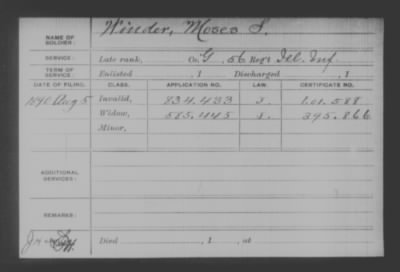 NAME OF SOLDIER: Winder, Moses S.
SERVICE: Late rank, Co. G, 56 Reg't Ill. Inf.
TERM OF SERVICE: Enlisted , 1 Discharged , 1
DATE OF FILING. CLASS. APPLICATION NO. LAW. CERTIFICATE NO.
1890 Aug 5 Invalid, 834.433
Widow, 585.445 395.866
Minor,
ADDITIONAL SERVICES:
REMARKS:
Died , 1 , at